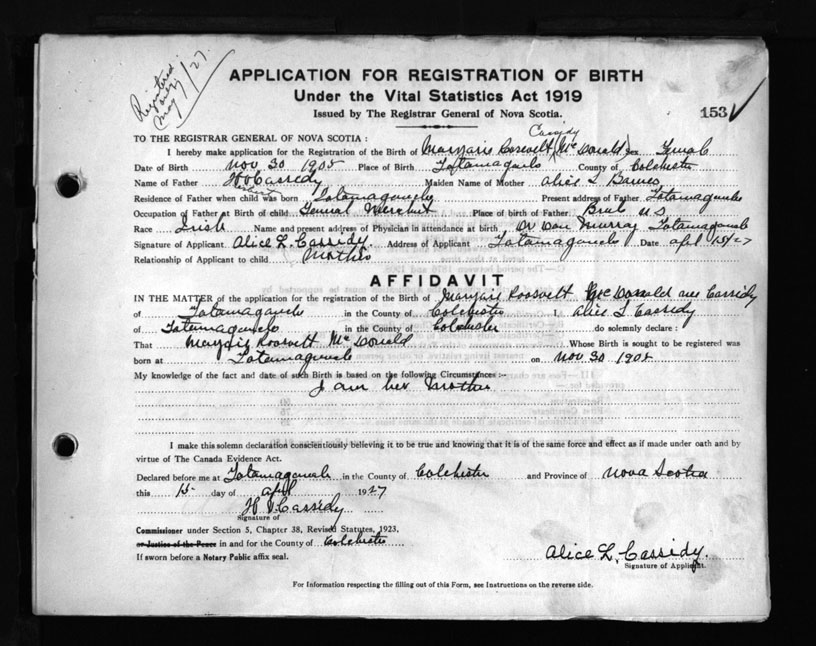 Registered
May 7/27.
APPLICATION FOR REGISTRATION OF BIRTH
Under the Vital Statistics Act 1919
Issued by The Registrar General of Nova Scotia.
153
TO THE REGISTRAR GENERAL OF NOVA SCOTIA :
Cassidy
I hereby make application for the Registration of the Birth of Marjorie Roosvelt McDonald Sex Female
Date of Birth Nov 30 1905 Place of Birth Tatamagouche County of Colchester
Name of Father Cassidy Maiden Name of Mother Alice L Barnes
Residence of Father when child was born Tatamagouche Present address of Father Tatamagouche
Occupation of Father at Birth of child General Merchant Place of birth of Father N.S
Race Irish Name and present address of Physician in attendance at birth Dr Dan Murray Tatamagouche
Signature of Applicant Alice L. Cassidy. Address of Applicant Tatamagouche Date April 15/27
Relationship of Applicant to child Mother
AFFIDAVIT
IN THE MATTER of the application for the registration of the Birth of Marjorie Roosvelt McDonald nee Cassidy
of Tatamagouche in the County of Colchester I, Alice L Cassidy
of Tatamagouche in the County of Colchester do solemnly declare :
That Marjorie Roosvelt McDonald Whose Birth is sought to be registered was
born at Tatamagouche on Nov 30 1905
My knowledge of the fact and date of such Birth is based on the following Circumstances :-
I am her Mother
I make this solemn declaration conscientiously believing it to be true and knowing that it is of the same force and effect as if made under oath and by
virtue of The Canada Evidence Act.
Declared before me at Tatamagouche in the County of Colchester and Province of Nova Scotia
this 15 day of April 1927
Cassidy
Signature of
Commissioner under Section 5, Chapter 38, Revised Statutes, 1923,
or Justice of the Peace in and for the County of Colchester
If sworn before a Notary Public affix seal.
Alice L. Cassidy.
Signature of Applicant.
For Information respecting the filling out of this Form, see Instructions on the reverse side.